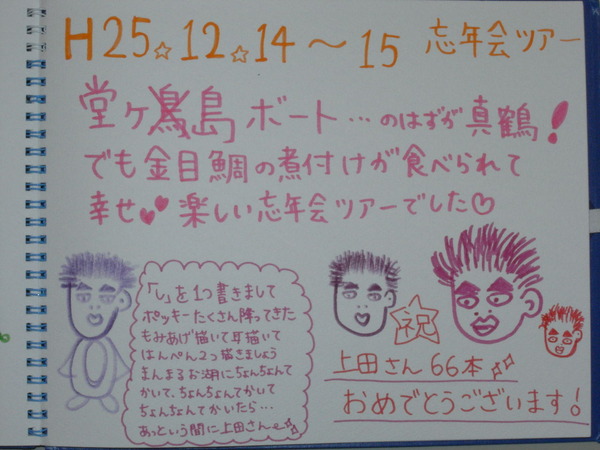 H25☆12☆14～15 忘年会ツアー
堂ヶ島ボート…のはずが真鶴！
でも金目鯛の煮付けが食べられて
幸せ♥♥楽しい忘年会ツアーでした♡
「し」を1つ書きまして
ポッキーたくさん降ってきた
もみあげ描いて耳描いて
はんぺん2つ描きましょう
まんまるお湖にちょんちょんて
かいて、ちょんちょんてかいて
ちょんちょんてかいたら…
あっという間に上田さん
祝
上田さん66本
おめでとうございます！